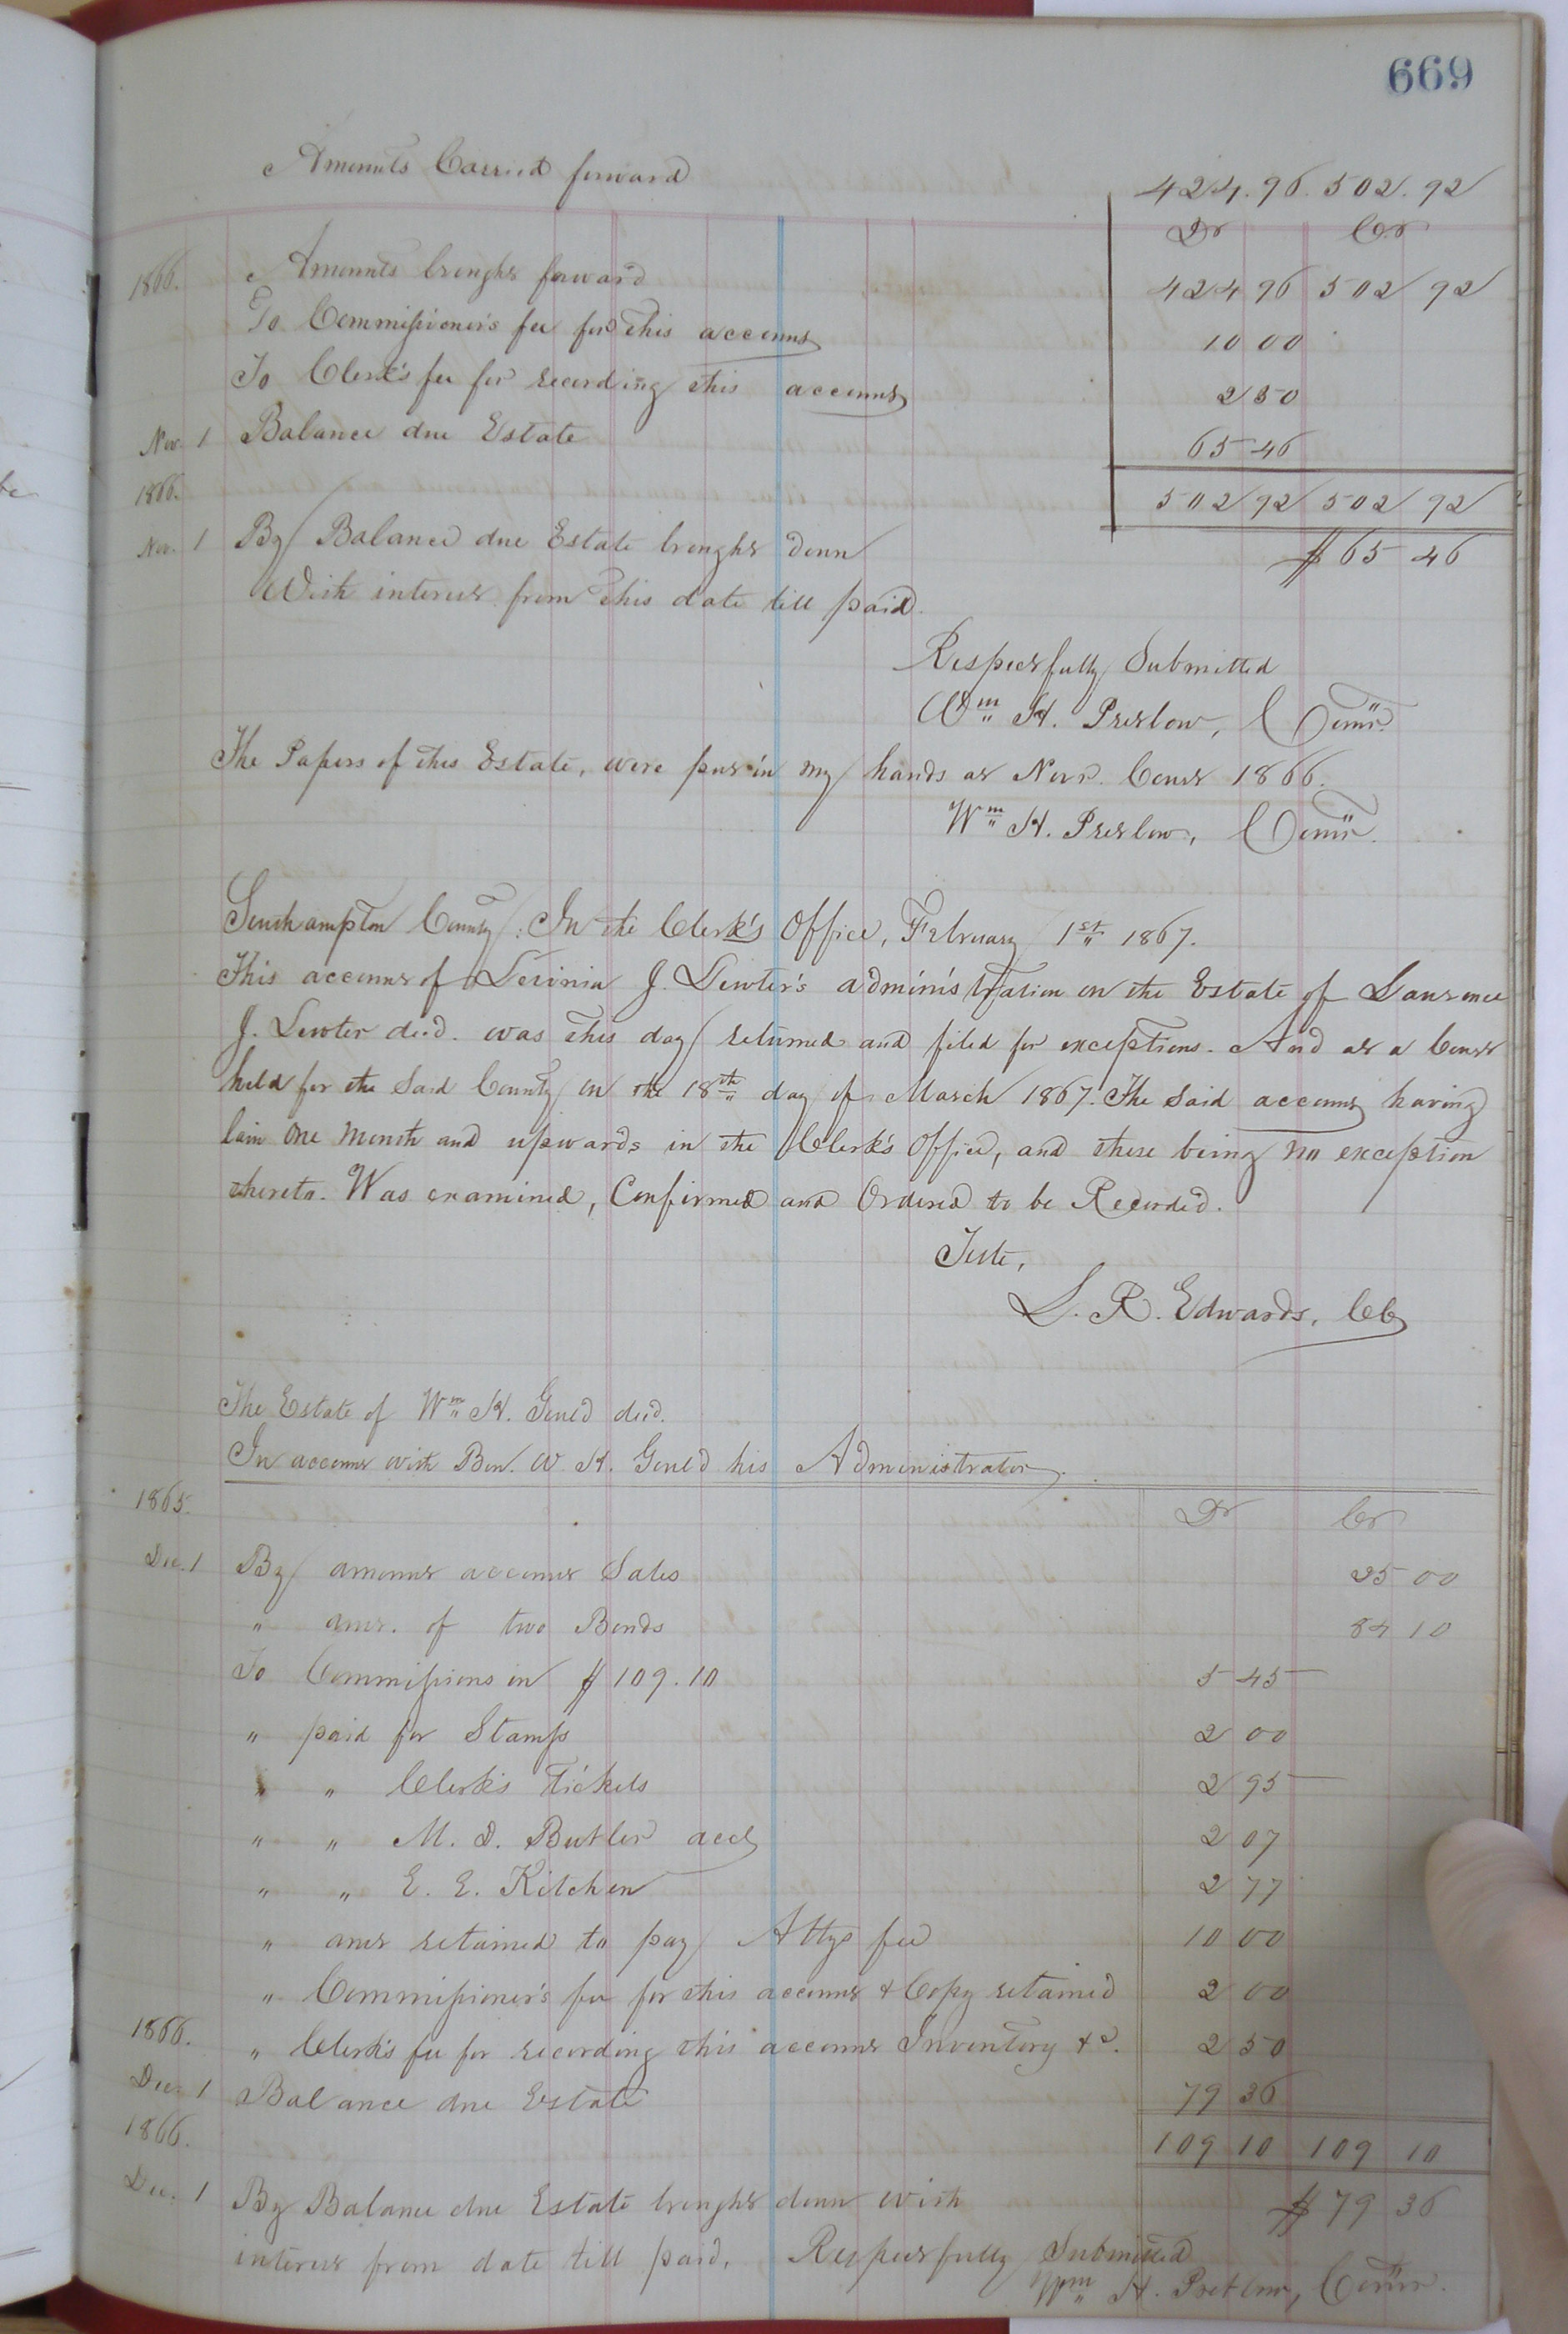 669
Amounts Carried forward 424.96. 502.92
Dr Cr
1866. Amounts brought forward 424 96 502 92
To Commissioner's fee for this account 10 00
To Clerk's fee for recording this account 2 50
Nov. 1 Balance due Estate 65 46
1866. 502 92 502 92
Nov. 1 By Balance due Estate brought down $65 46
With interest from this date till paid.
Respectfully Submitted
Wm H. Pretlow, Comr.
The Papers of this Estate, were put in my hands at Novr. Court 1866.
Wm H. Pretlow, Comr.
Southampton County: In the Clerk's Office, February 1st 1867.
This account of J. Lewter's administration on the Estate of Laurence
J. Lewter decd. was this day returned and filed for exceptions. And at a Court
held for the Said County on the 18th day of March 1867. The Said account having
lain one month and upwards in the Clerk's Office, and there being no exception
thereto. Was examined, Confirmed and Ordered to be Recorded.
Teste,
L. R. Edwards, Clk
The Estate of Wm H. Gould decd.
In account with Ben. W. H. Gould his Administrator.
1865. Dr Cr
Dec. 1 By amount account Sales 25 00
" amt. of two Bonds 84 10
To Commissions on $109.10 5 45
" paid for Stamps 2 00
" " Clerk's Tickets 2 95
" " M. D. Butler acct 2 07
" " E. E. Kitchen 2 77
" amt retained to pay Attys fee 10 00
" Commissioner's fee for this account & Copy retained 2 00
1866. " Clerk's fee for recording this account Inventory &c. 2 50
Dec. 1 Balance due Estate 79 36
1866. 109 10 109 10
Dec. 1 By Balance due Estate brought down with $79 36
interest from date till paid. Respectfully Submitted
Wm H. Pretlow, Comr.